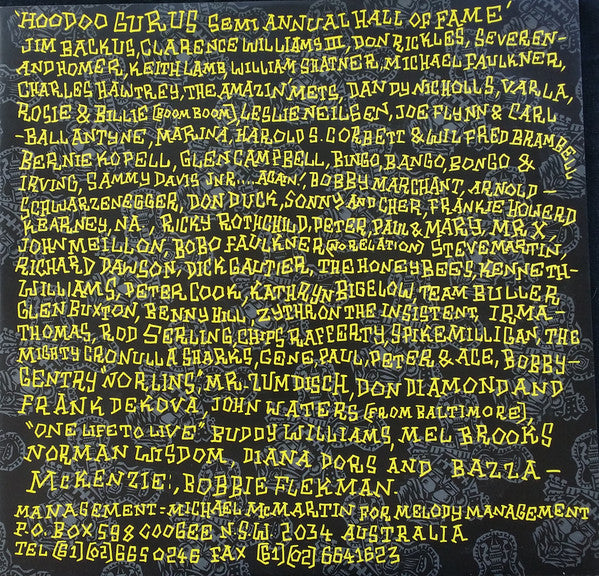 'HOODOO GURUS SEMI ANNUAL HALL OF FAME'
JIM BACKUS, CLARENCE WILLIAMS III, DON RICKLES, SEVEREN-
AND HOMER, KEITH LAMB, WILLIAM SHATNER, MICHAEL FAULKNER,
CHARLES HAWTREY, THE AMAZIN METS, DANDY NICHOLLS, VARLA,
ROSIE & BILLIE (BOOM BOOM), LESLIE NEILSEN, JOE FLYNN & CARL
-BALLANTYNE, MARINA, HAROLD S. CORBETT & WILFRED BRAMBELL
BERNIE KOPELL, GLEN CAMPBELL, BINGO, BANGO, BONGO &
IRVING, SAMMY DAVIS JNR.... AGAIN!, BOBBY MARCHANT, ARNOLD-
SCHWARZENEGGER, DON DUCK, SONNY AND CHER, FRANKJE HOWERD
KEARNEY, NA, RICKY ROTHCHILD, PETER, PAUL & MARY, MR. X,
JOHN MEILLON, BOBO FAULKNER (NO RELATION) STEVE MARTIN,
RICHARD DAWSON, DICK GAUTIER, THE HONEYBEES, KENNETH-
WILLIAMS, PETER COOK, KATHRYN BIGELOW, TEAM BULLER
GLEN BUXTON, BENNY HILL, ZYTHRON THE INSISTENT, IRMA-
THOMAS, ROD SERLING, CHIPS RAFFERTY, SPIKE MILLIGAN, THE
MIGHTY CRONULLA SHARKS, GENE, PAUL, PETER & ACE, BOBBY-
GENTRY "NORLINS", MR. ZUMDISCH, DON DIAMOND AND
FRANK DEKOVA, JOHN WATERS (FROM BALTIMORE),
"ONE LIFE TO LIVE", BUDDY WILLIAMS, MEL BROOKS
NORMAN WISDOM, DIANA DORS AND BAZZA-
MCKENZIE, BOBBIE FLEKMAN.
MANAGEMENT = MICHAEL MCMARTIN FOR MELODY MANAGEMENT
P.O. BOX 598 COOGEE N.S.W. 2034 AUSTRALIA
TEL (61) (02) 665 0246 FAX (61) (02) 6641623